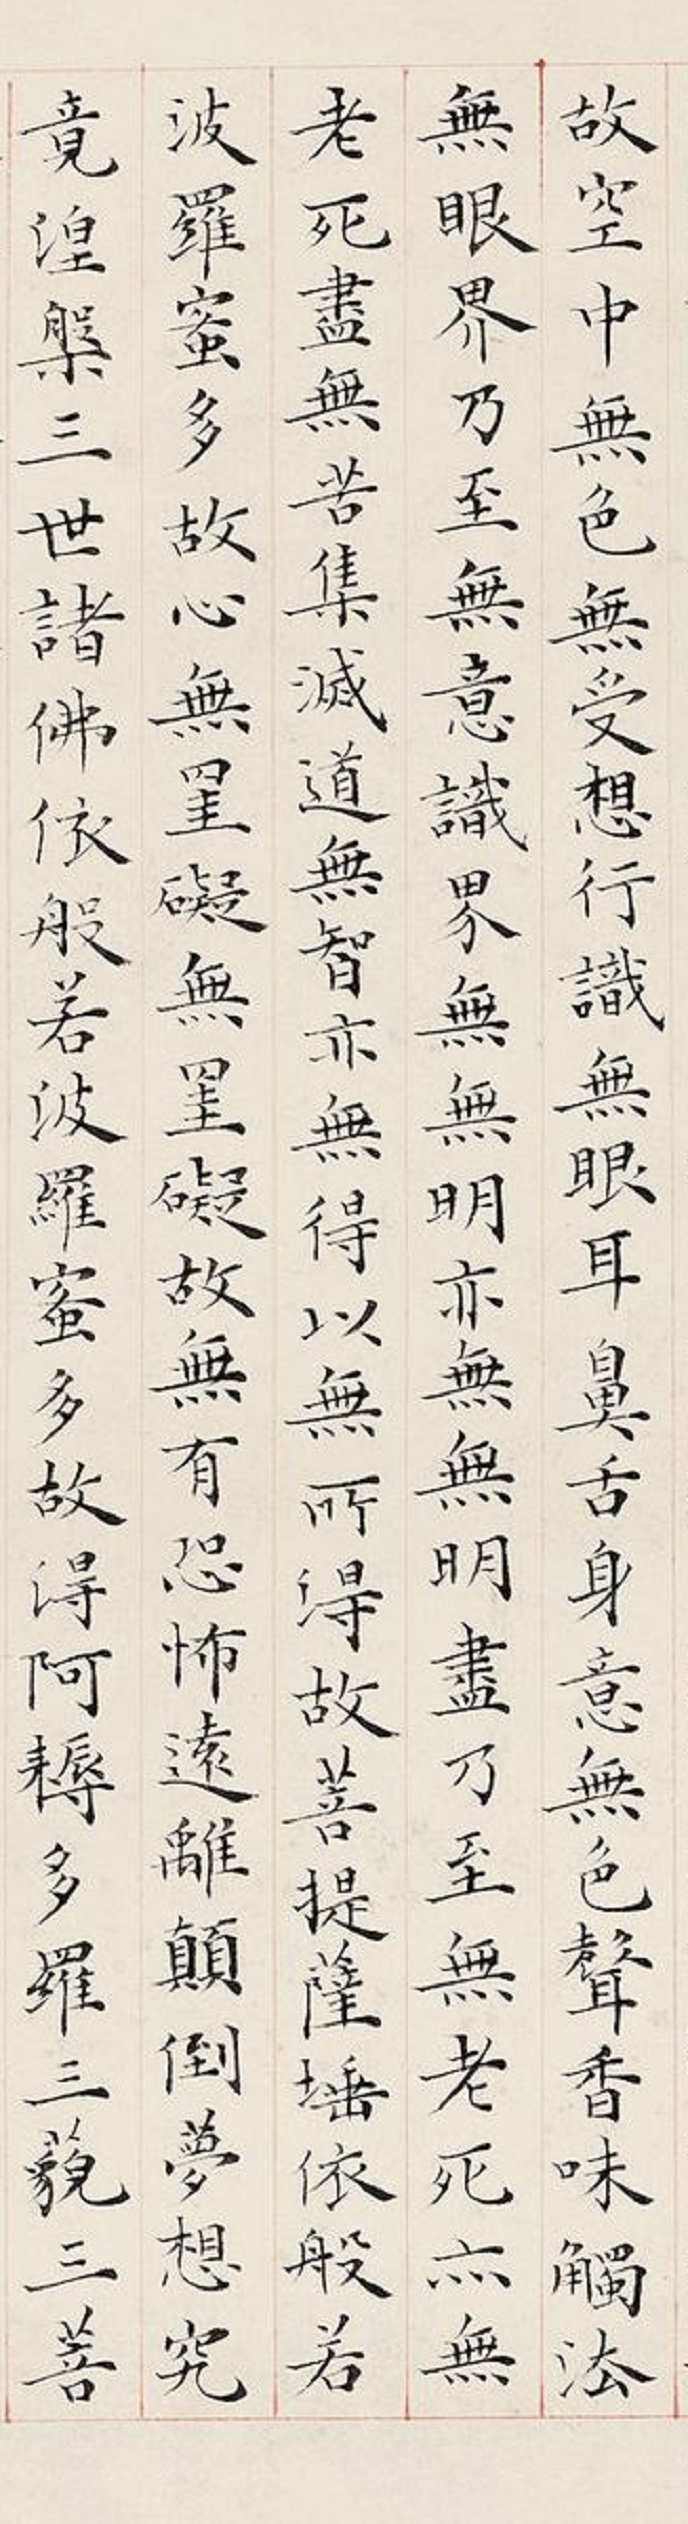 故空中無色無受想行識無眼耳鼻舌身意無色聲香味觸法
無眼界乃至無意識界無無明亦無無明盡乃至無老死亦無
老死盡無苦集滅道無智亦無得以無所得故菩提薩埵依般若
波羅蜜多故心無罣礙無罣礙故無有恐怖遠離顛倒夢想究
竟涅槃三世諸佛依般若波羅蜜多故得阿耨多羅三藐三菩